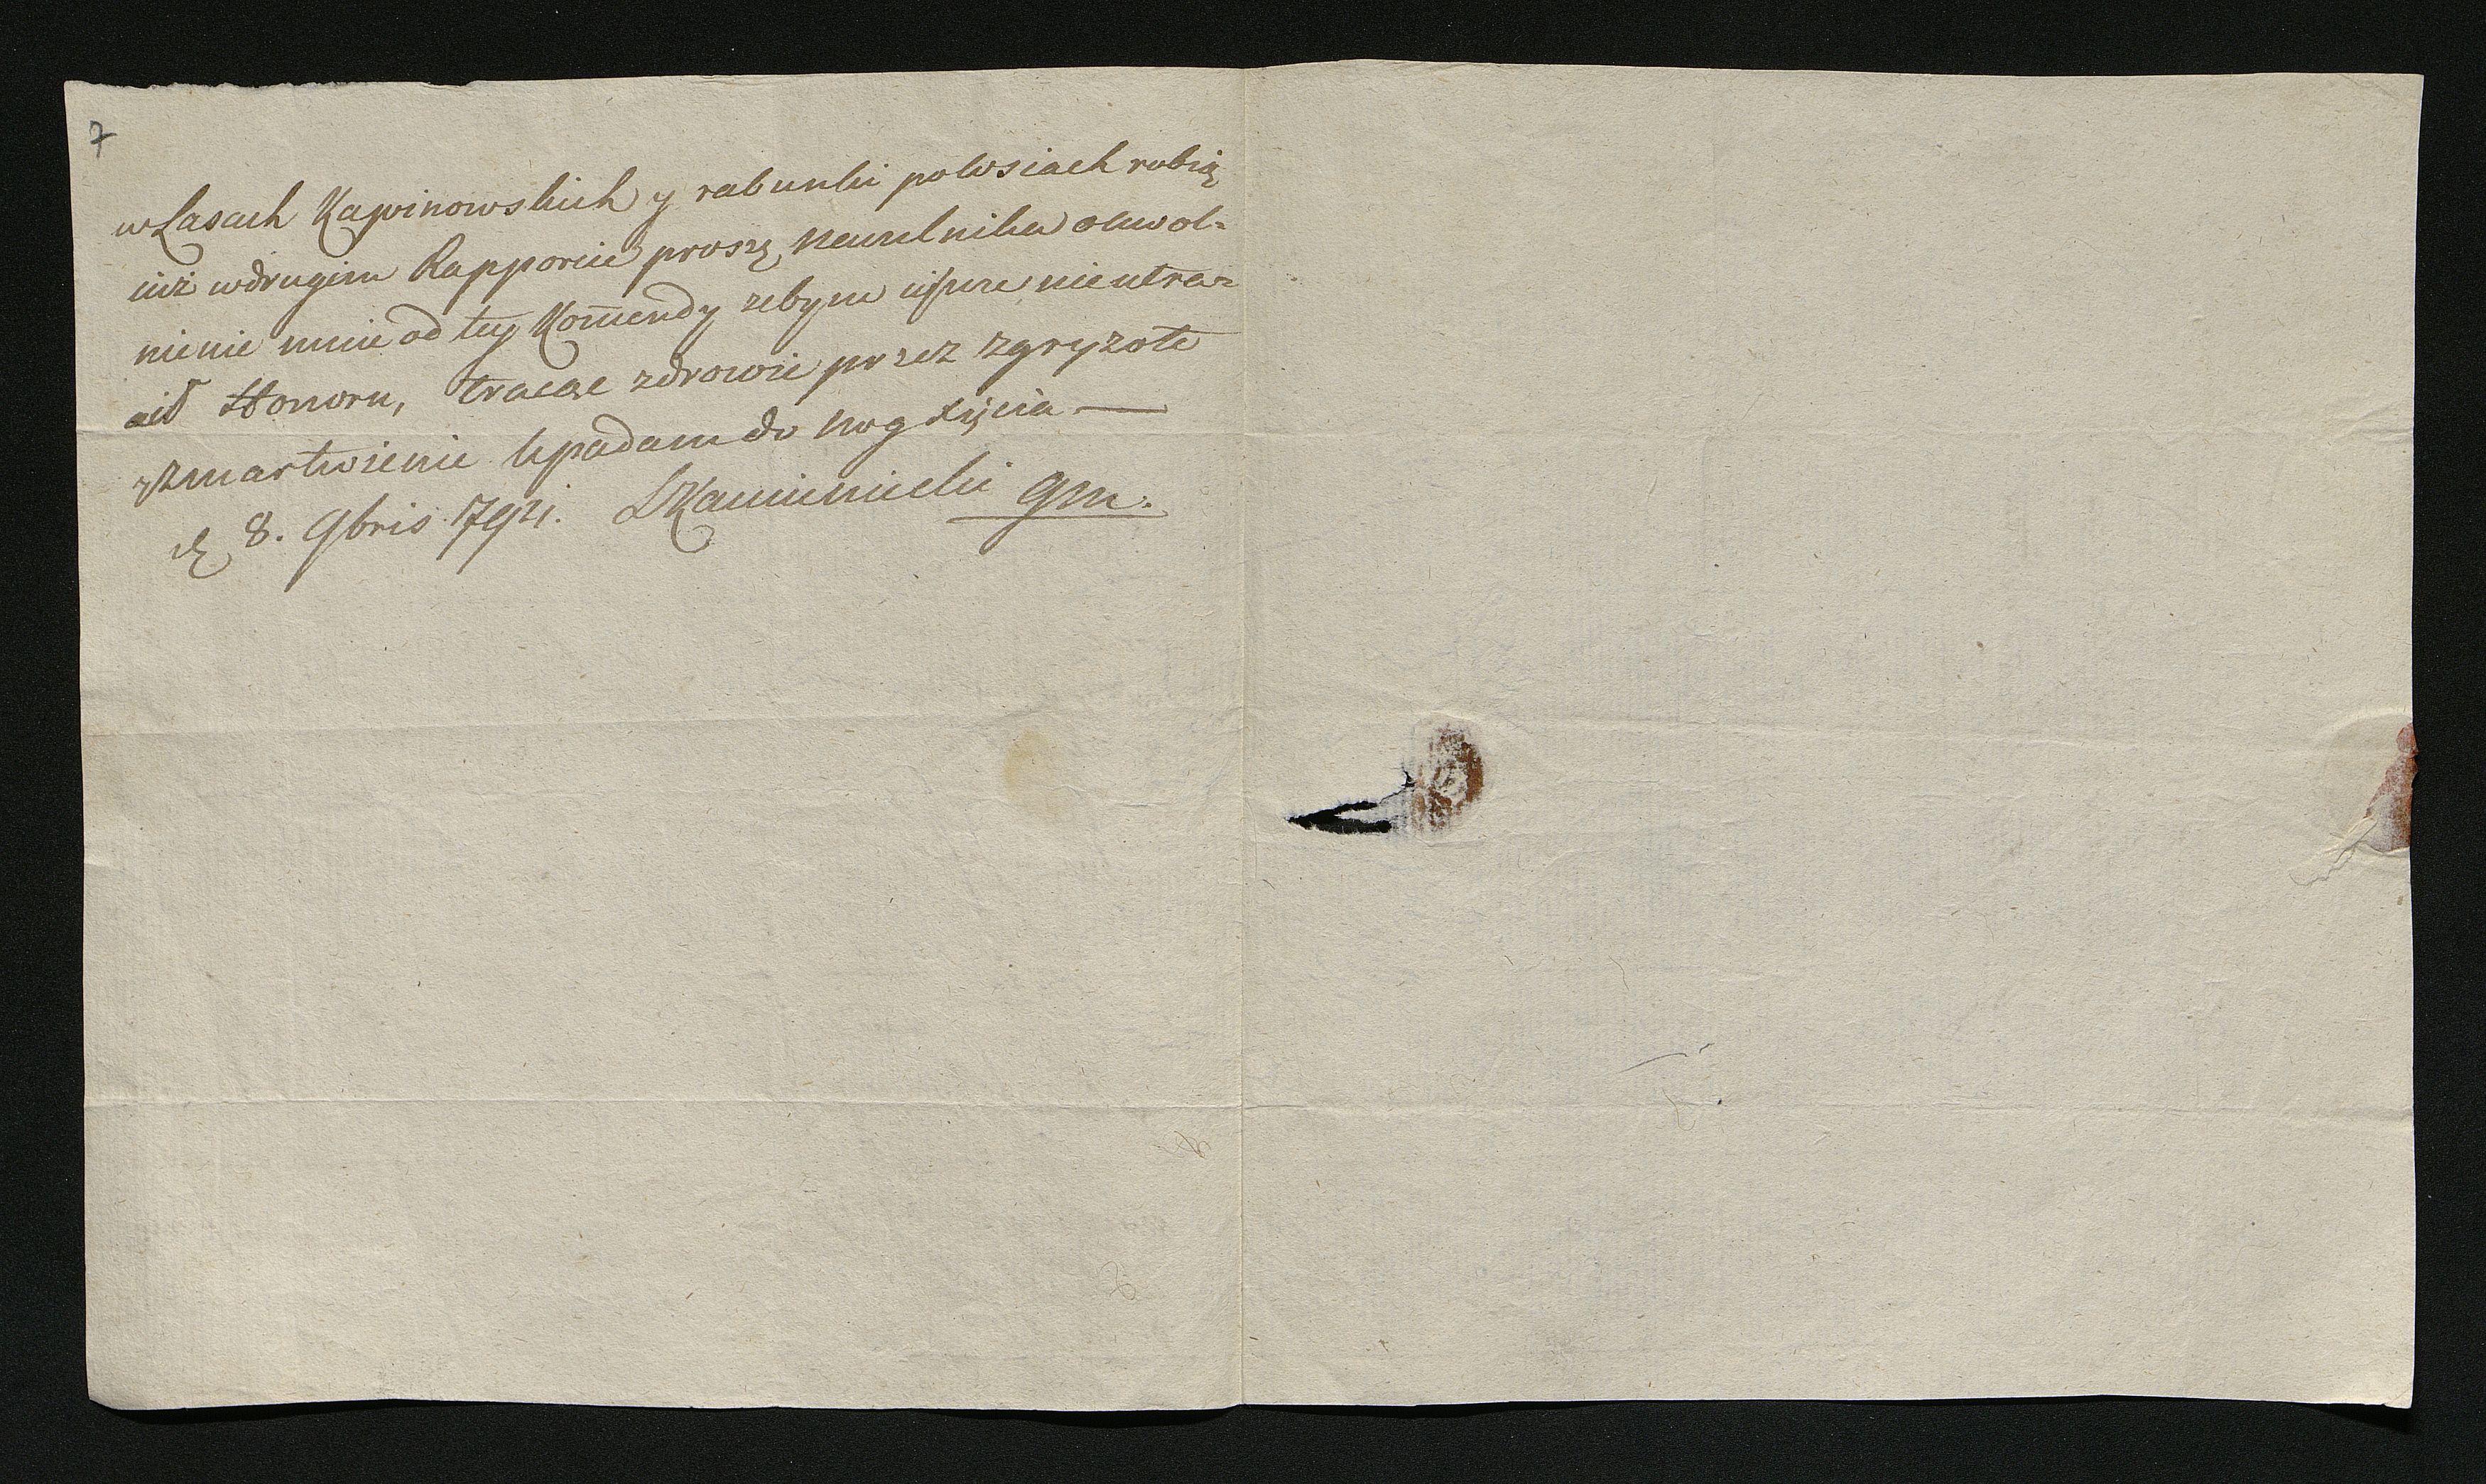 7
w Lasach Kapinowskich y rabunki po wsiach robią
iuż w drugim Rapporcie proszę Naczelnika o uwol=
nienie mnie od tey Kom̅endy zebym ieszcze nie utra=
cił Honoru, tracąc zdrowie przez zgryzote
y zmartwienie Upadam do nog Xięcia —
d. 8. 9bris 1794. LKamieniecki GM.